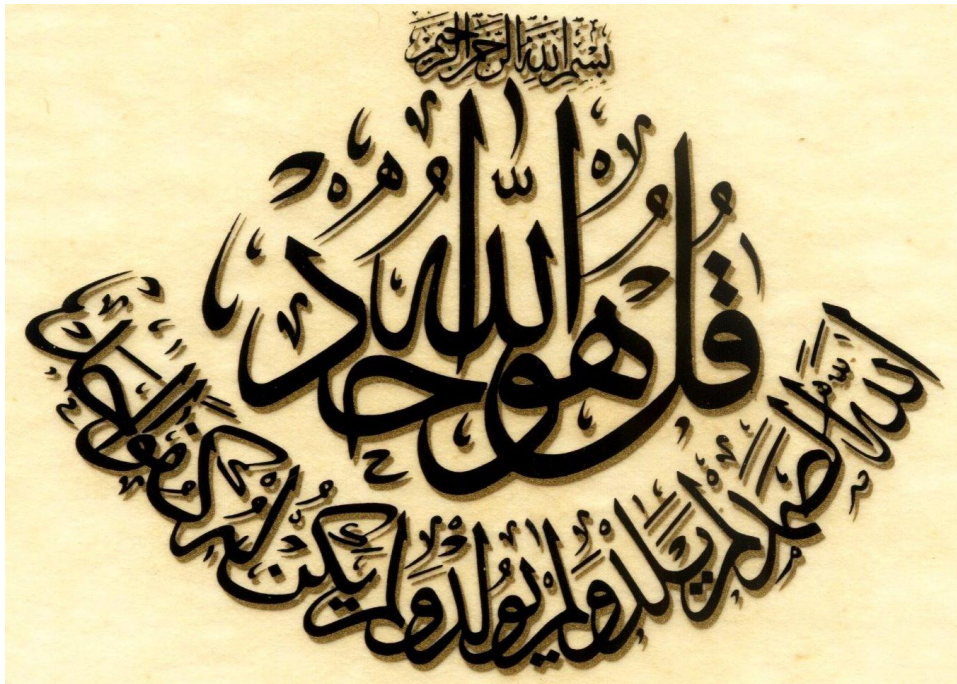 بِسْمِ اللَّهِ الرَّحْمَنِ الرَّحِيمِ
قُلْ هُوَ اللَّهُ أَحَدٌ
اللَّهُ الصَّمَدُ لَمْ يَلِدْ وَلَمْ يُولَدْ وَلَمْ يَكُن لَّهُ كُفُوًا أَحَدٌ